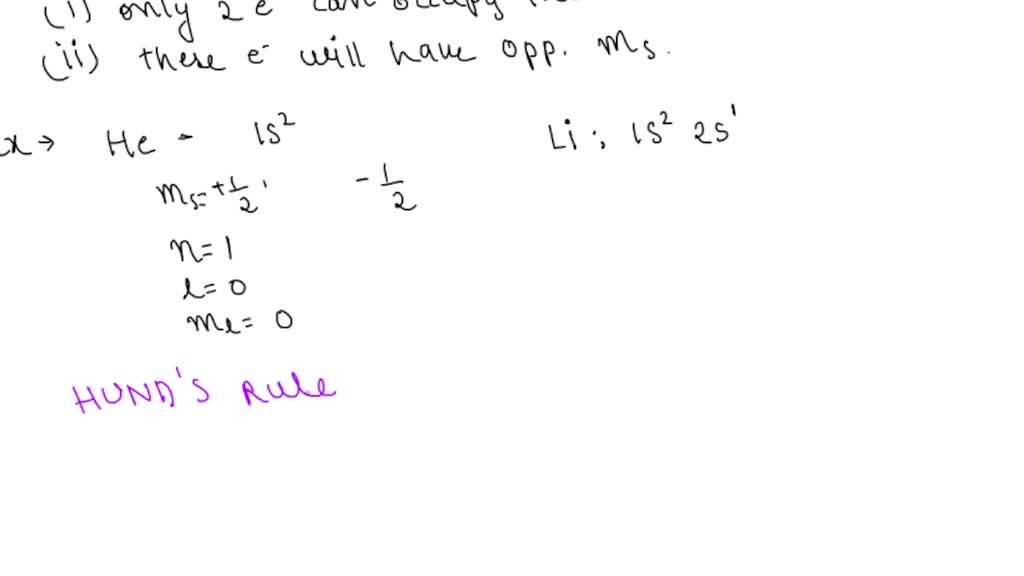 (i) only 2 e⁻ can occupy
(ii) these e⁻ will have opp. ms.
x → He - 1s² Li : 1s² 2s¹
ms = +1/2, -1/2
n = 1
l = 0
ml = 0
HUND'S RULE